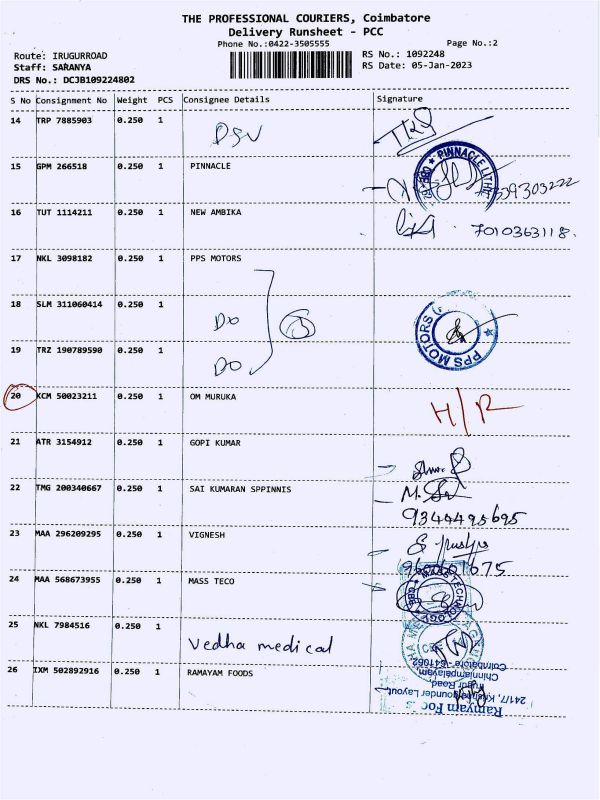 THE PROFESSIONAL COURIERS, Coimbatore
Delivery Runsheet - PCC
Phone No.:0422-3505555
Page No.:2
Route: IRUGURROAD
RS No.: 1092248
Staff: SARANYA
RS Date: 05-Jan-2023
DRS No.: DCJB109224802
S No Consignment No Weight PCS Consignee Details Signature
14 TRP 7885903 0.250 1 DSV
15 GPM 266518 0.250 1 PINNACLE
PINNACLE
16 TUT 1114211 0.250 1 NEW AMBIKA 7010363118.
17 NKL 3098182 0.250 1 PPS MOTORS
18 SLM 311060414 0.250 1 Do
PPS MOTORS
19 TRZ 190789590 0.250 1 DO
20 KCM 50023211 0.250 1 OM MURUKA H/R
21 ATR 3154912 0.250 1 GOPI KUMAR
22 TMG 200340667 0.250 1 SAI KUMARAN SPPINNIS
9344495695
23 MAA 296209295 0.250 1 VIGNESH
24 MAA 568673955 0.250 1 MASS TECO
MASS TECHNOLOGY
25 NKL 7984516 0.250 1 Vedha medical
26 IXM 502892916 0.250 1 RAMAYAM FOODS
Coimbatore - 641062
Chinniampalayam,
Irugur Road,
24/7, Krishna Gounder Layout,